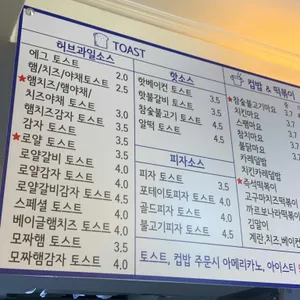 TOAST
허브과일소스
에그 토스트 2.0
햄/치즈/야채토스트 2.5
★햄치즈/햄야채/
치즈야채 토스트
햄치즈감자 토스트
감자 토스트
★로얄 토스트 3.5
로얄갈비 토스트
로얄감자 토스트
로얄갈비감자 토스트
스페셜 토스트
베이글햄치즈 토스트
모짜햄 토스트 3.5
모짜햄감자 토스트 4.0
핫소스
핫베이컨 토스트 3.5
핫불갈비 토스트 3.5
참숯불고기 토스트 3.5
알떡 토스트 4.5
피자소스
피자 토스트 3.5
포테이토피자 토스트 4.0
골드피자 토스트 4.0
불고기피자 토스트 4.5
컵밥 & 떡볶이
★참숯불고기마요 3.7
치킨마요
스팸마요
참치마요
불닭마요
카레덮밥
치킨카레덮밥
★즉석떡볶이
고구마치즈떡볶이
까르보나라떡볶이
김말이
계란,치즈,베이컨
토스트, 컵밥 주문시 아메리카노, 아이스티